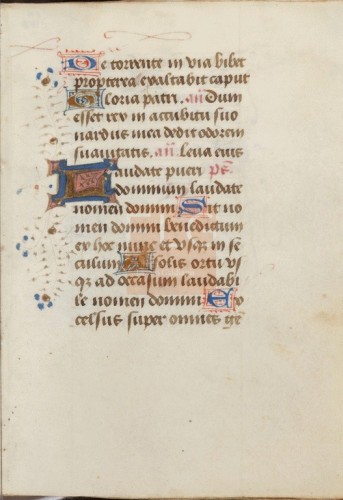 De torrente in via bibet
propterea exaltabit caput
Gloria patri. añ Dum
esset rex in accubitu suo
nardus mea dedit odorem
suavitatis. añ Leva eius
Laudate pueri ps̄
dominum laudate
nomen domini Sit no
men domini benedictum
ex hoc nunc et usqz in se
culum A solis ortu vs
qz ad occasum laudabi
le nomen domini Ex
celsus super omnes gē